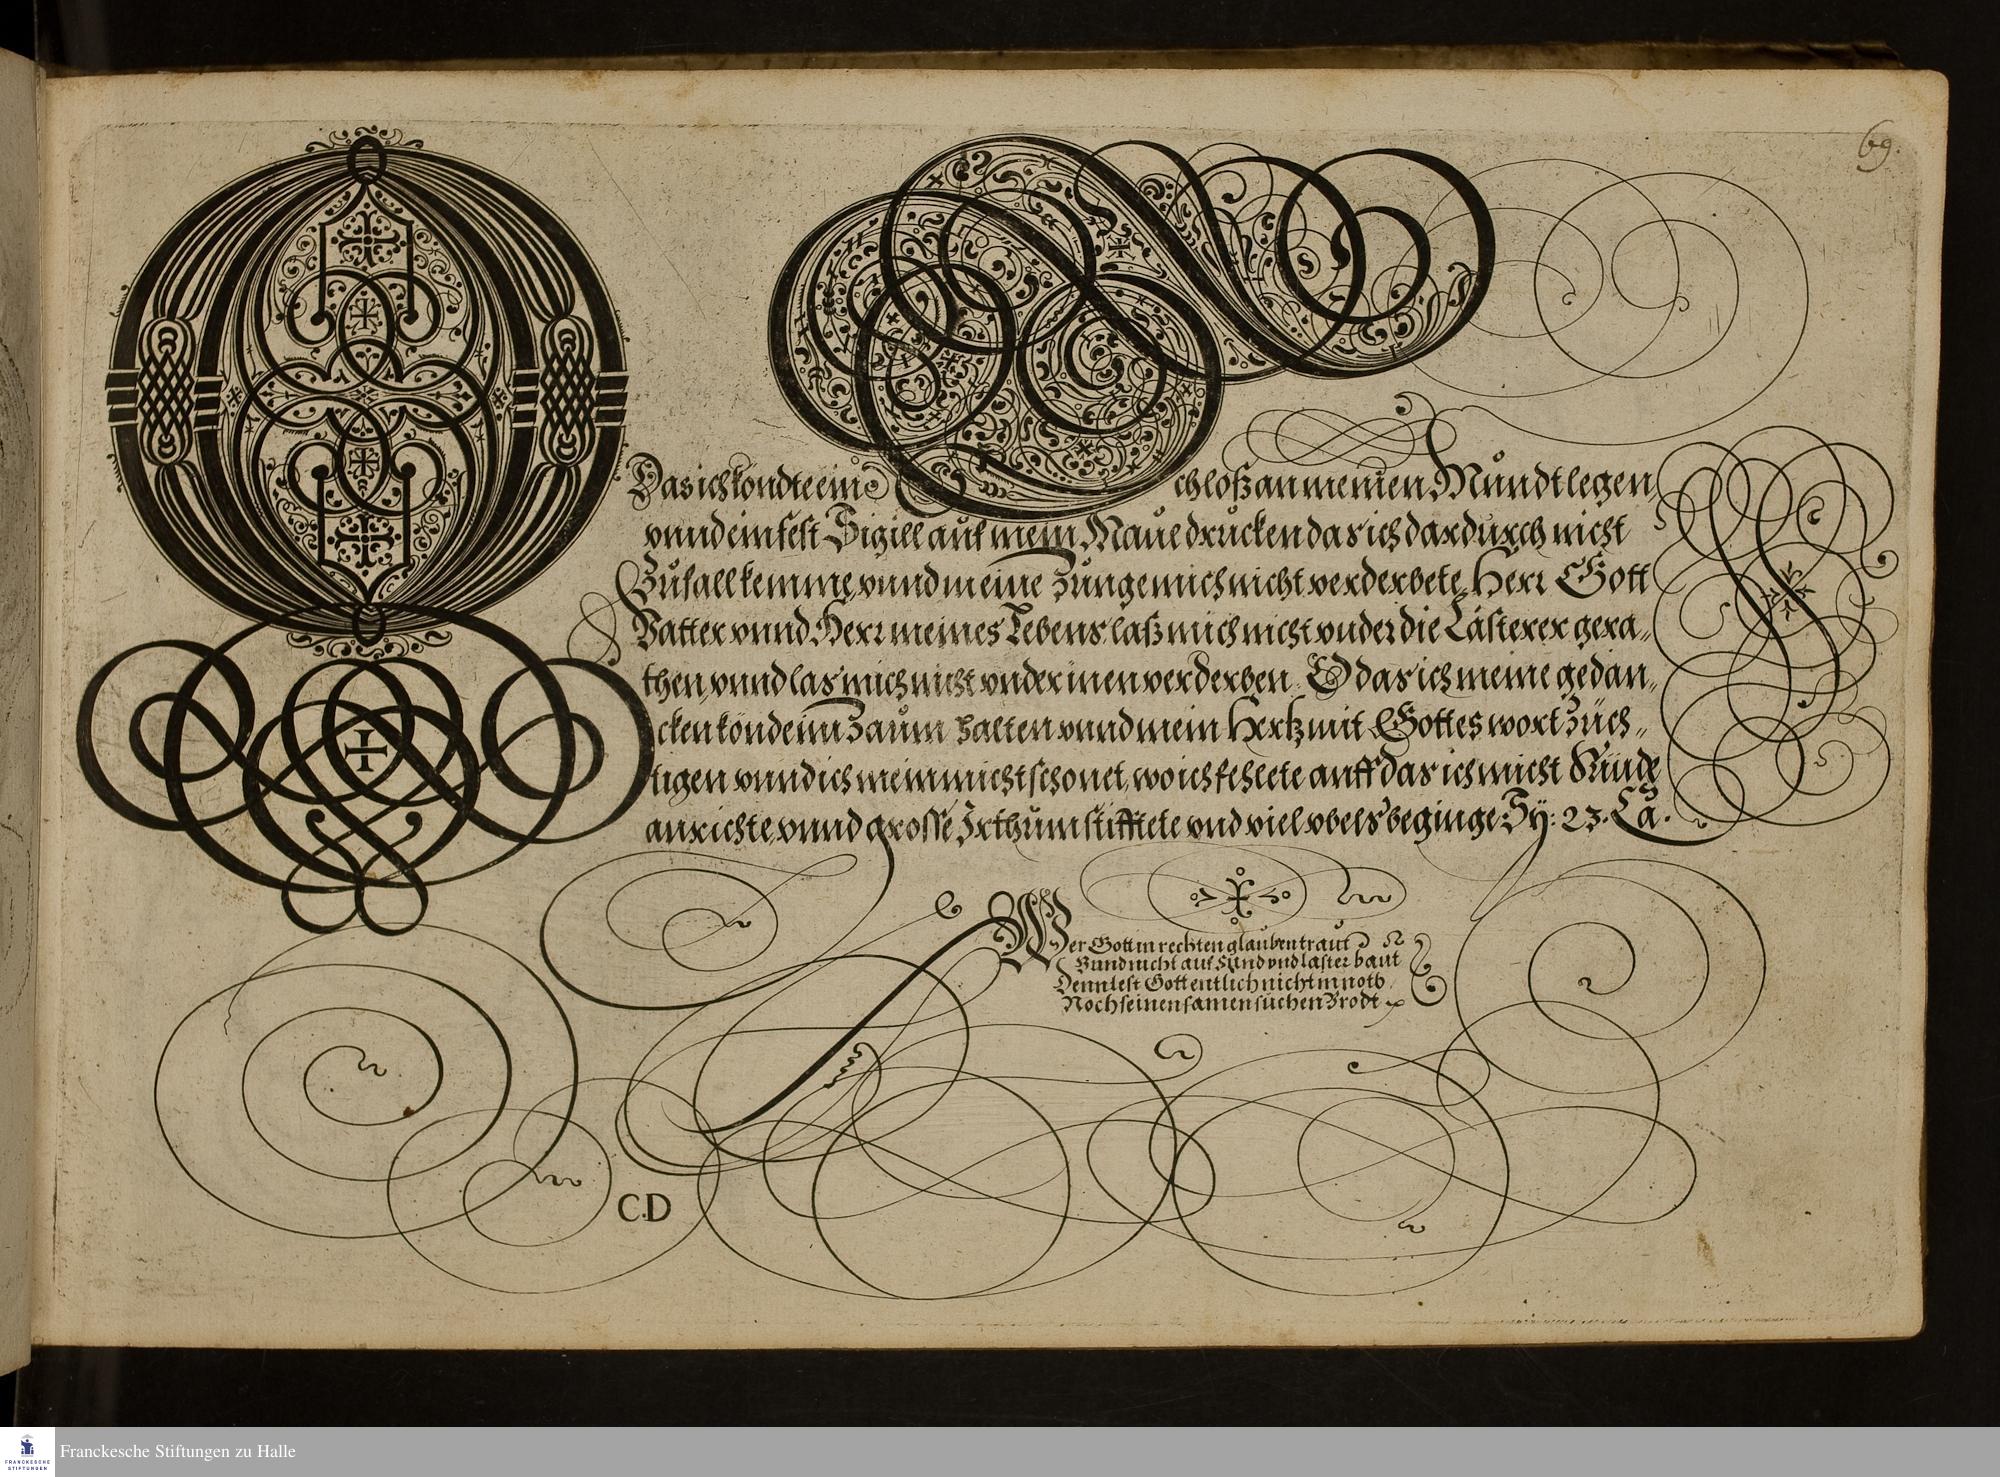 69.
O Das ich kondte ein Schloß an meinen Mundt legen
vnnd ein fest Sigill auf mein Maue drucken das ich dardurch nicht
Zu fall kemme, vnnd meine Zunge mich nicht verderbete, Herr Gott
Vatter vnnd Herr meines Lebens laß mich nicht vnder die Lästerer gera„
then, vnnd las mich nicht vnder inen verderben. O das ich meine gedan„
cken könde im Zaum halten vnnd mein Hertz mit Gottes wort Züch„
tigen vnnd ich mein nicht schonet, wo ich fehlete auff das ich nicht Sünde
anrichte, vnnd grosse Irthum stifftete vnd viel vbels beginge. Sÿ: 23. Ca.
Wer Gott in rechten glauben traut
Vund nicht auf Sünd vnd laster baut
Denn lest Gott entlich nicht in noth
Noch seinen samen suchen Brodt
C.D
Franckesche Stiftungen zu Halle
FRANCKESCHE
STIFTUNGEN